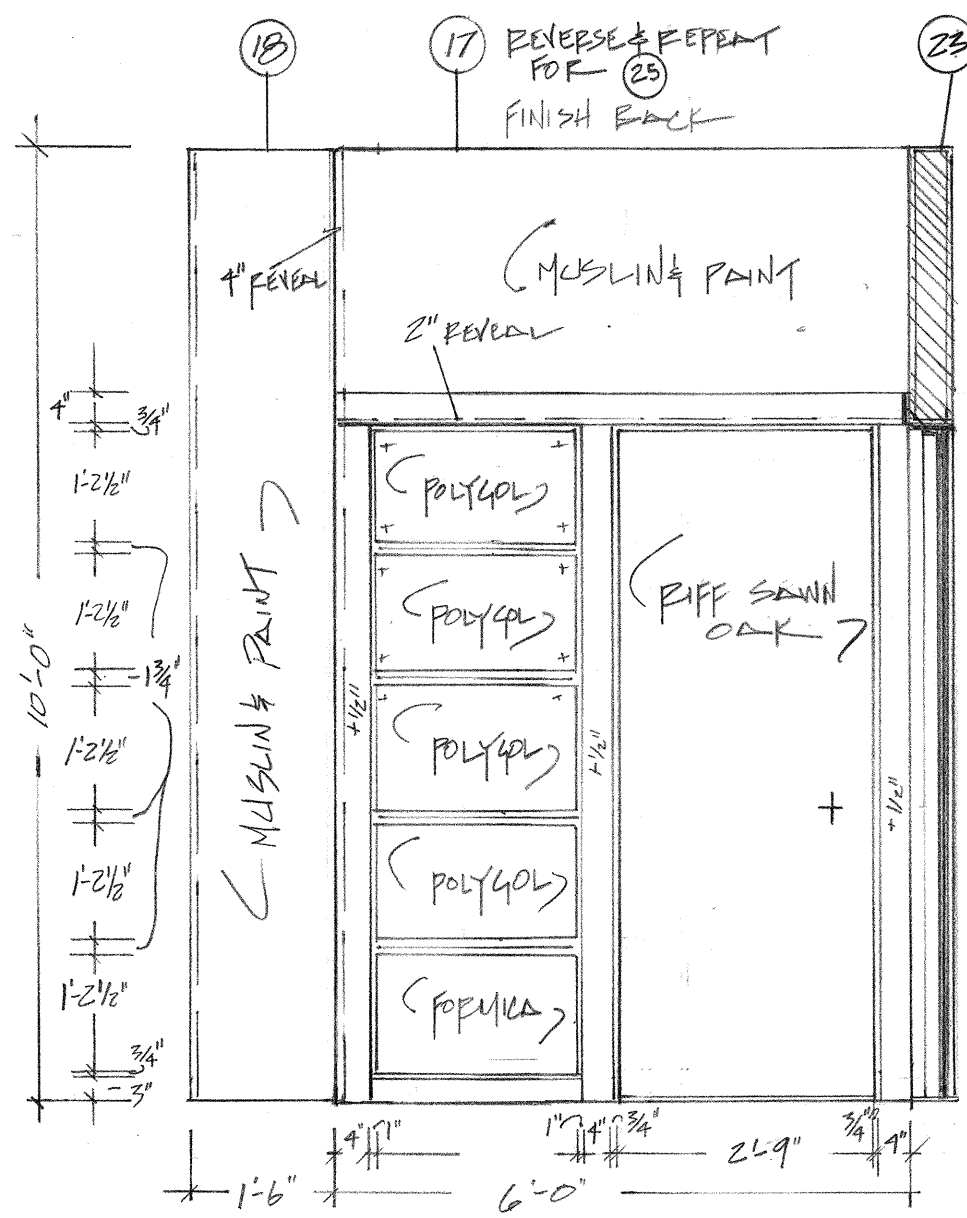 18
17
REVERSE & REPEAT
FOR 25
FINISH BACK
23
4" REVEAL
MUSLIN & PAINT
2" REVEAL
4"
3/4"
1'-2 1/2"
1'-2 1/2"
1 3/4"
1'-2 1/2"
1'-2 1/2"
1'-2 1/2"
3/4"
3"
10'-0"
MUSLIN & PAINT
+ 1/2"
POLYGAL
POLYGAL
POLYGAL
POLYGAL
FORMICA
+ 1/2"
RIFF SAWN
OAK
+ 1/2"
4"
1"
1"
4"
3/4"
2'-9"
3/4"
4"
1'-6"
6'-0"